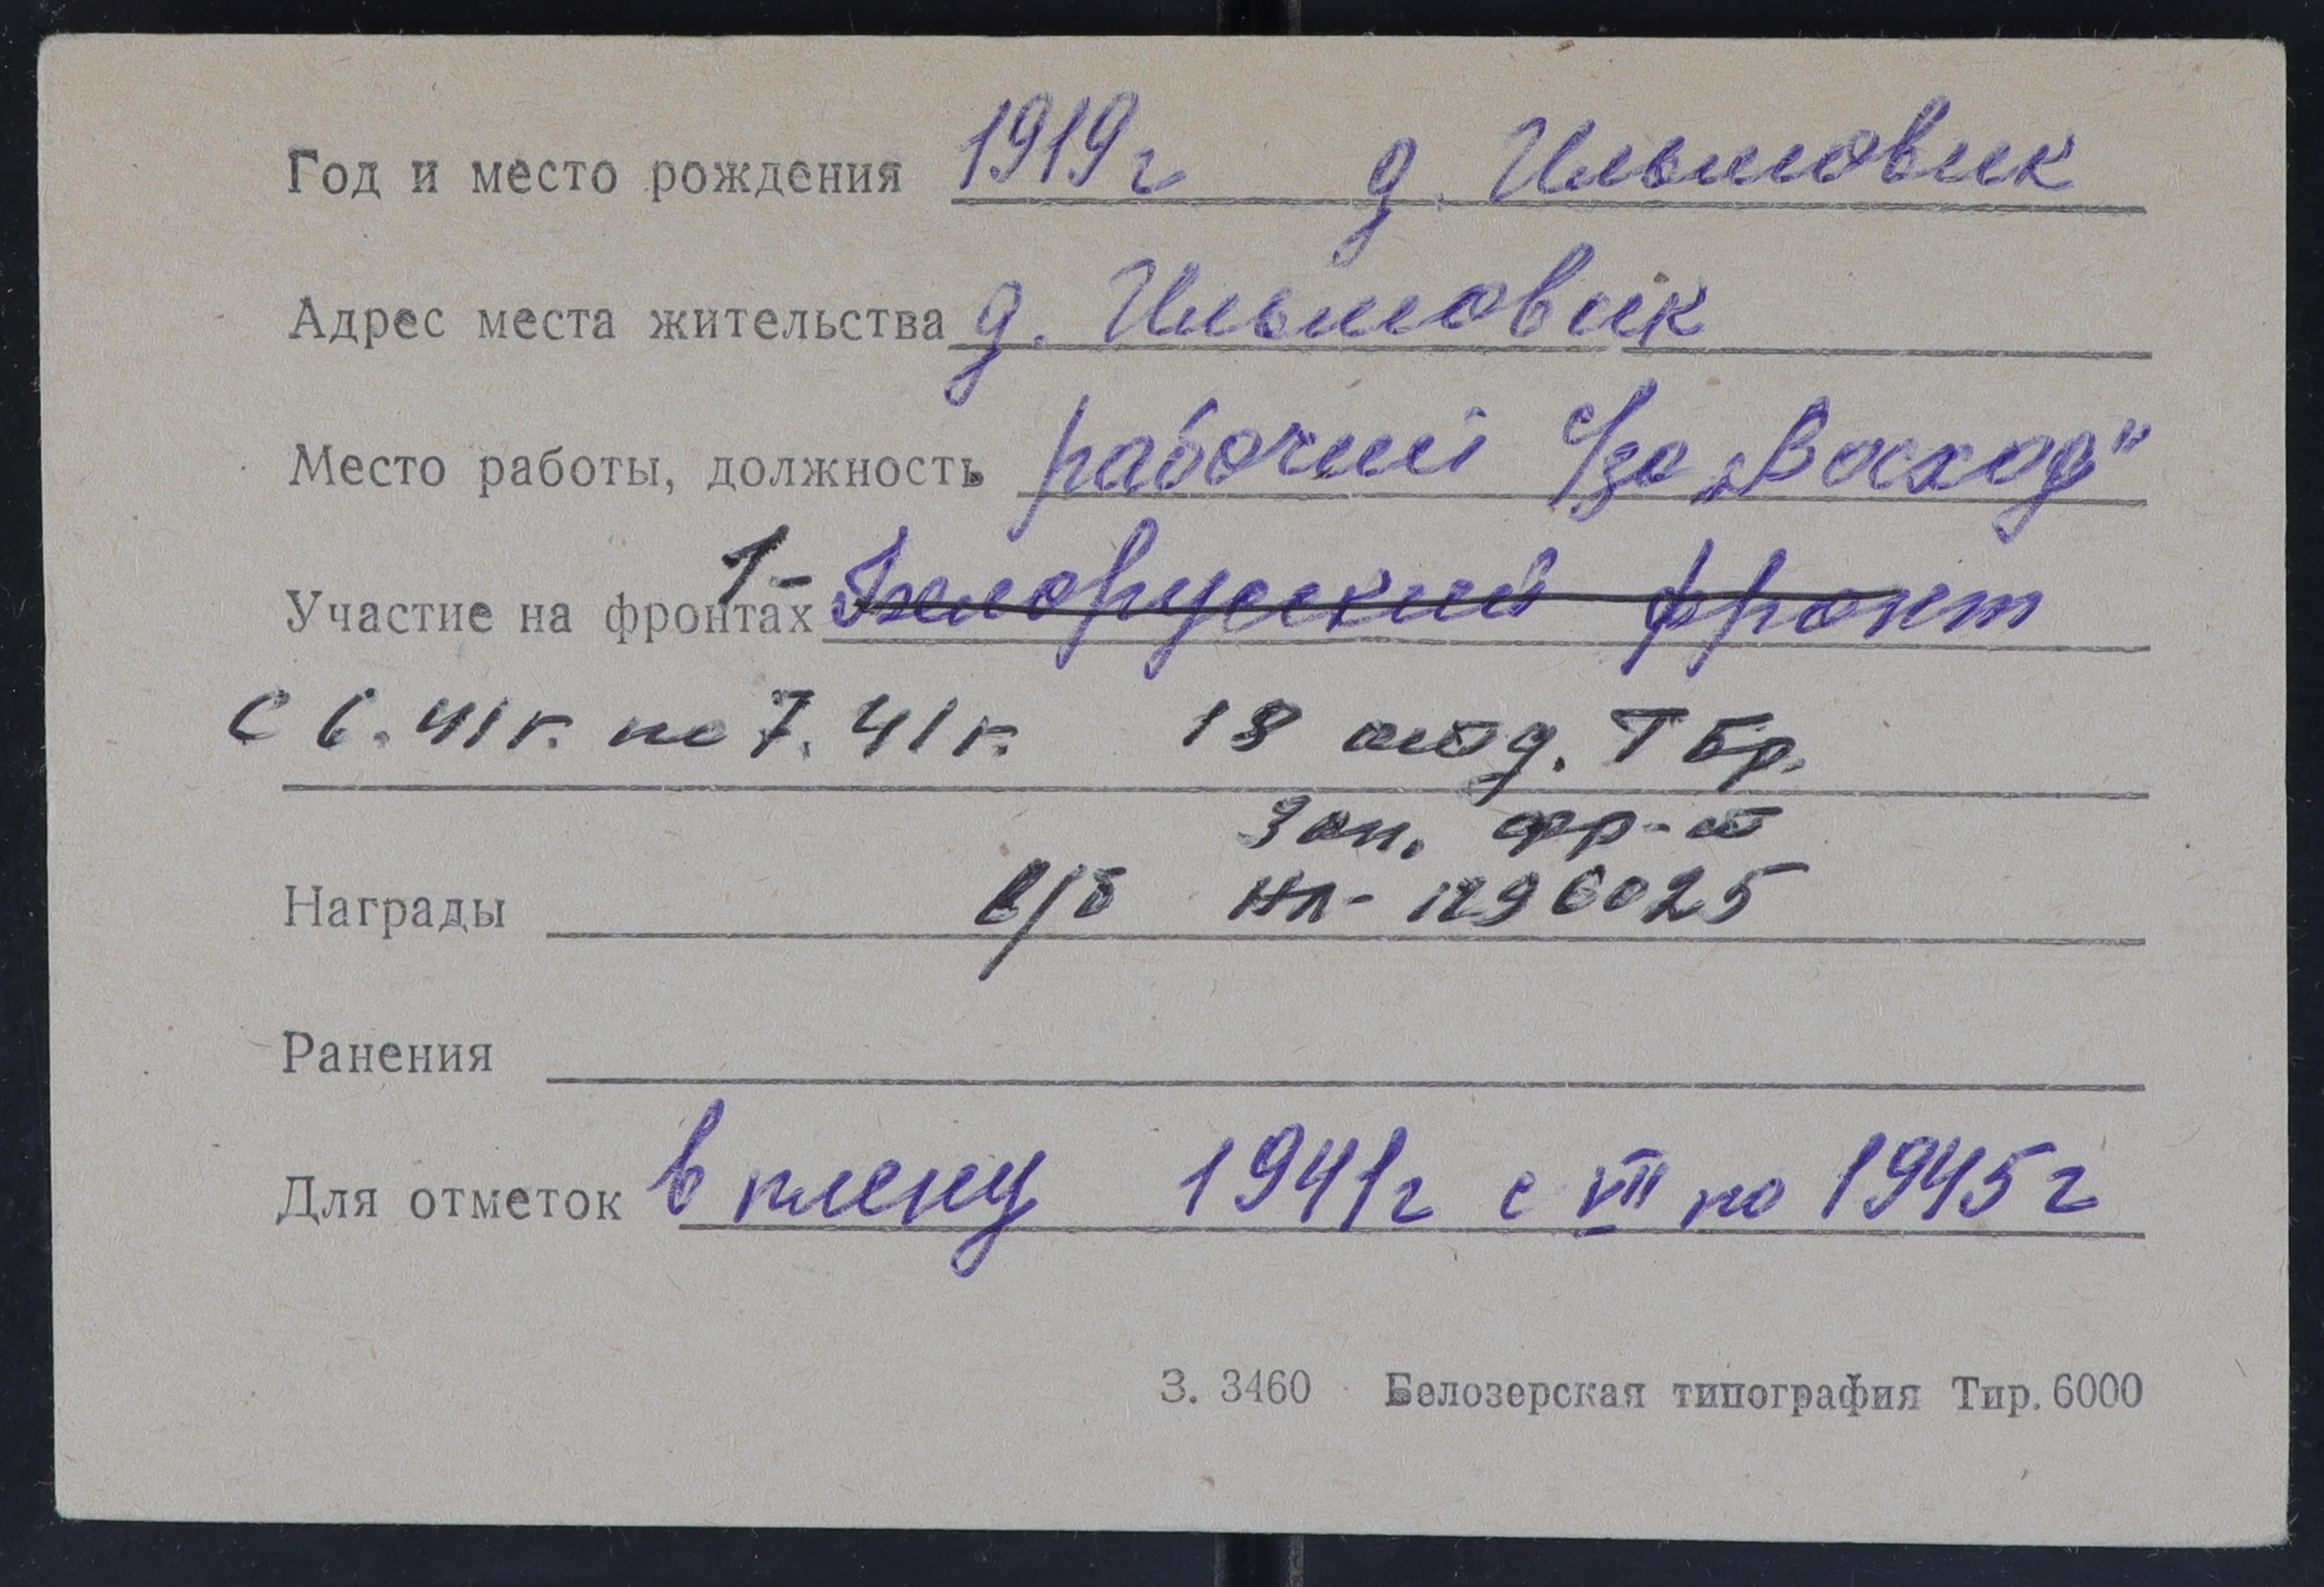 Год и место рождения 1919г д. Ильмовик
Адрес места жительства д. Ильмовик
Место работы, должность рабочий с/за „Восход"
Участие на фронтах 1- Белоруский фронт
с 6.41г. по 7.41г. 18 отд. Т бр.
Зап. фр-т
Награды в/б НЛ-1296025
Ранения
Для отметок в плену 1941г с VII по 1945г
З. 3460 Белозерская типография Тир. 6000